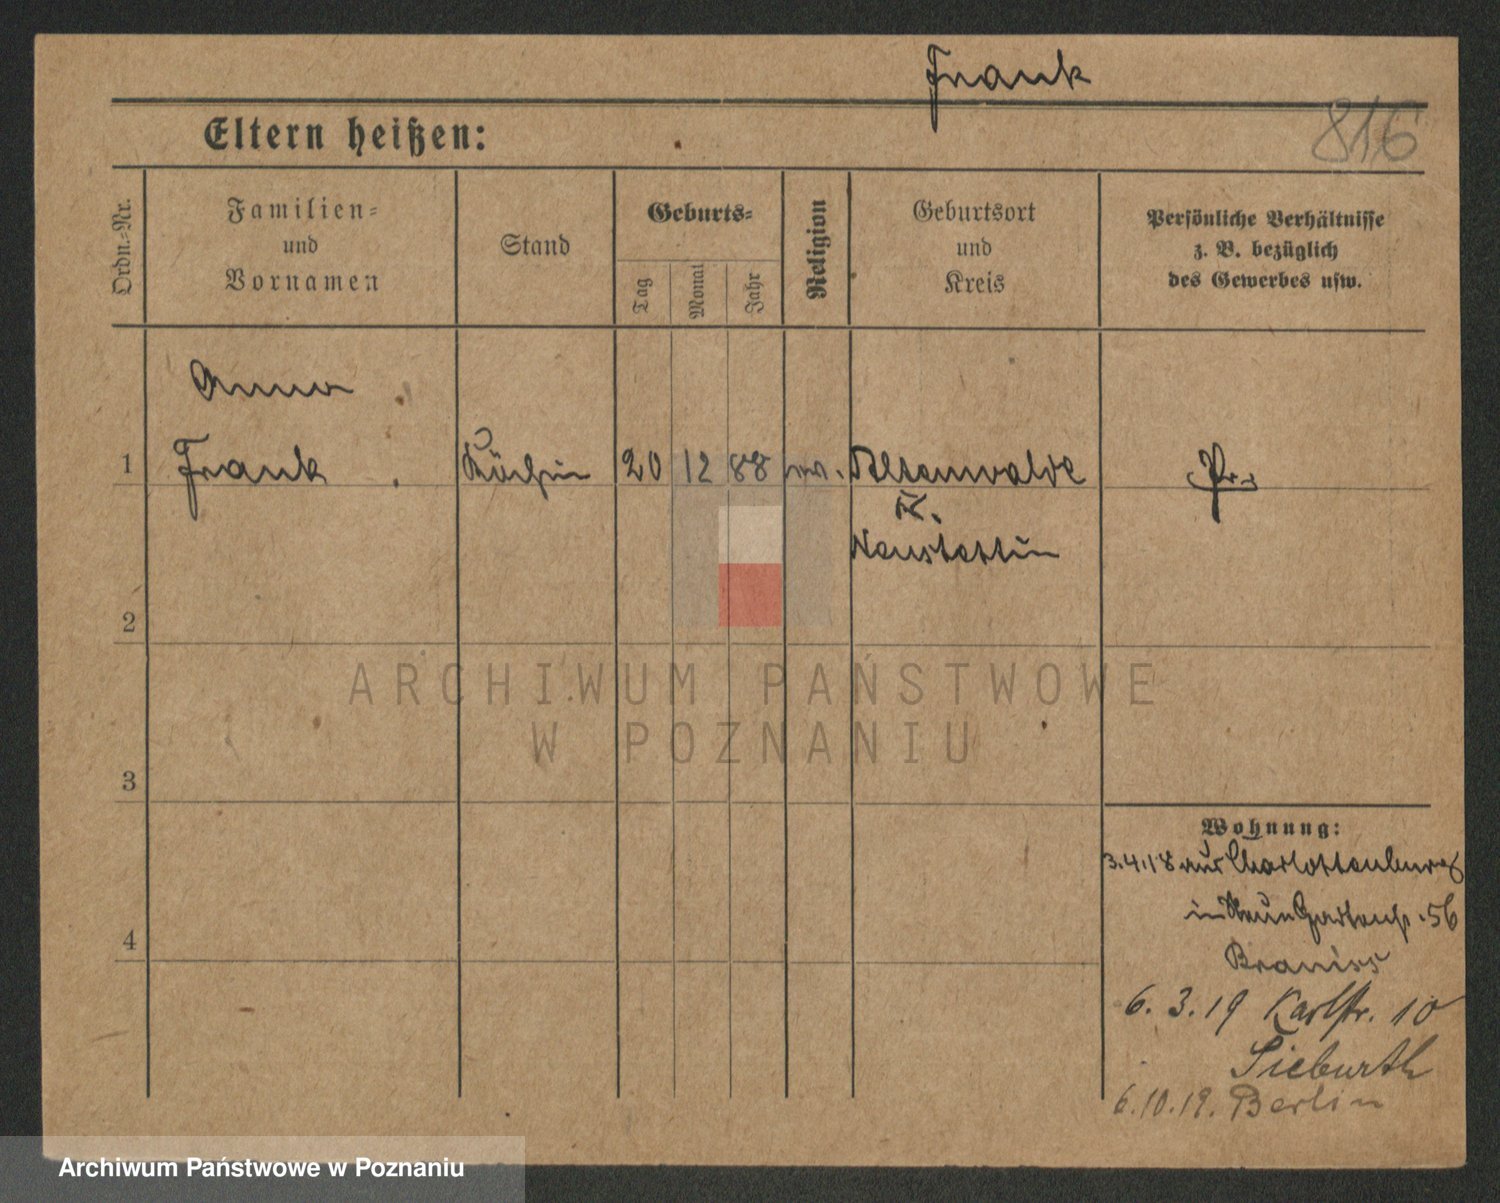 Frank
816
Eltern heißen:
Ordn.-Nr.
Familien-
und
Vornamen
Stand
Geburts-
Tag
Monat
Jahr
Religion
Geburtsort
und
Kreis
Persönliche Verhältnisse
z. B. bezüglich
des Gewerbes usw.
Anna
1 Frank Köchin 20 12 88 ev. Altenwalde Pr.
K.
Neustettin
2
3
4
Wohnung:
3.4.18 aus Charlottenburg
in 56
Braniss
6.3.19 Karlstr. 10
Sieburth
6.10.19. Berlin
ARCHIWUM PAŃSTWOWE
W POZNANIU
Archiwum Państwowe w Poznaniu